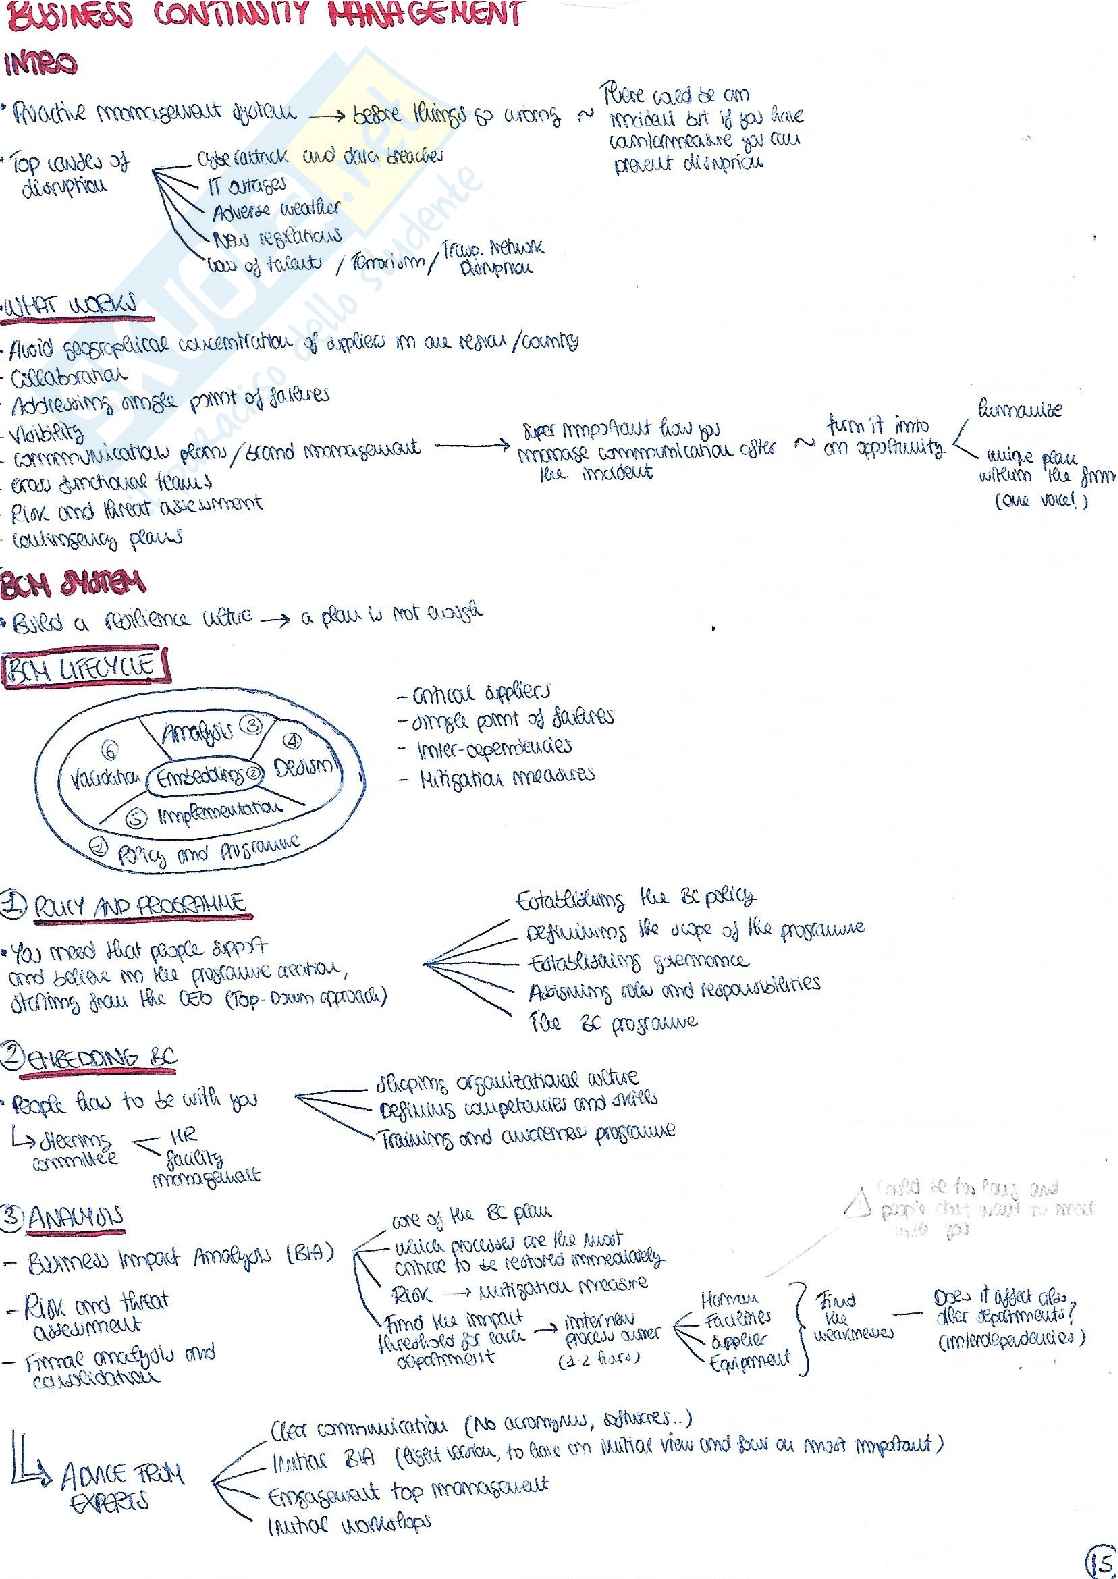 BUSINESS CONTINUITY MANAGEMENT
INTRO
• Proactive management system → before things go wrong ~ There could be an
incident but if you have
countermeasure you can
prevent disruption
• Top causes of
disruption
Cyberattack and data breaches
IT outages
Adverse weather
New regulations
Loss of talents / Terrorism / Transp. Network
Disruption
• WHAT WORKS
- Avoid geographical concentration of suppliers in one region/country
- Collaboration
- Addressing single point of failures
- Visibility
- Communication plans/brand management → super important how you
manage communication after
the incident ~ turn it into
an opportunity
humanize
unique plan
within the firm
(one voice!)
- cross functional teams
- Risk and threat assessment
- contingency plans
BCM SYSTEM
• Build a resilience culture → a plan is not enough
BCM LIFECYCLE
Analysis ③
④ Design
⑥ Validation
Embedding ②
⑤ Implementation
Policy and programme
- Critical suppliers
- single point of failures
- Inter-dependencies
- Mitigation measures
① POLICY AND PROGRAMME
• You need that people support
and believe in the programme creation,
starting from the CEO (Top-Down approach)
Establishing the BC policy
Definining the scope of the programme
Establishing governance
Assigning roles and responsibilities
The BC programme
② EMBEDDING BC
• People has to be with you
↳ steering
committee
HR
facility
management
Shaping organizational culture
Defining competencies and skills
Training and awareness programme
③ ANALYSIS
- Business Impact Analysis (BIA)
core of the BC plan
which processes are the most
critical to be restored immediately
Risk → mitigation measure
Find the impact
threshold for each
department → interview
process owner
(1-2 hours)
Human
Facilities
Supplier
Equipment
Find
the
weaknesses
Does it affect also
other departments?
(interdependencies)
could be too long and
people don't want to
- Risk and threat
assessment
- Final analysis and
consolidation
ADVICE FROM
EXPERTS
Clear communication (No acronyms, softwares..)
Initial BIA (light version, to have an initial view and focus on most important)
Engagement top management
Initial workshops
15
SKUOLA.net
dello studente